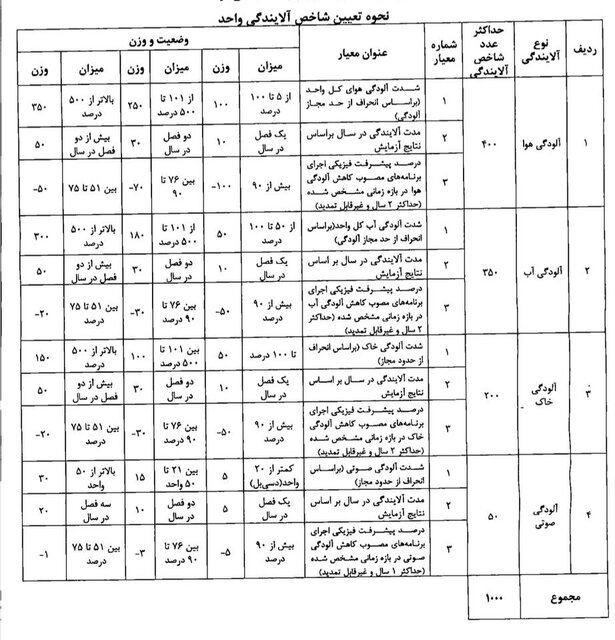 نحوه تعیین شاخص آلایندگی واحد
ردیف | نوع آلایندگی | حداکثر عدد شاخص آلایندگی | شماره معیار | عنوان معیار | وضعیت و وزن
میزان | وزن | میزان | وزن | میزان | وزن
۱ | آلودگی هوا | ۴۰۰ | ۱ | شدت آلودگی هوای کل واحد (براساس انحراف از حد مجاز آلودگی) | از ۵ تا ۱۰۰ درصد | ۱۰۰ | از ۱۰۱ تا ۵۰۰ درصد | ۲۵۰ | بالاتر از ۵۰۰ درصد | ۳۵۰
۲ | مدت آلایندگی در سال براساس نتایج آزمایش | یک فصل در سال | ۱۰ | دو فصل در سال | ۳۰ | بیش از دو فصل در سال | ۵۰
۳ | درصد پیشرفت فیزیکی اجرای برنامه‌های مصوب کاهش آلودگی هوا در بازه زمانی مشخص شده (حداکثر ۲ سال و غیرقابل تمدید) | بیش از ۹۰ | -۱۰۰ | بین ۷۶ تا ۹۰ | -۷۰ | بین ۵۱ تا ۷۵ | -۵۰
۲ | آلودگی آب | ۳۵۰ | ۱ | شدت آلودگی آب کل واحد(براساس انحراف از حد مجاز آلودگی) | از ۵۰ تا ۱۰۰ درصد | ۵۰ | از ۱۰۱ تا ۵۰۰ درصد | ۱۸۰ | بالاتر از ۵۰۰ درصد | ۳۰۰
۲ | مدت آلایندگی در سال بر اساس نتایج آزمایش | یک فصل در سال | ۱۰ | دو فصل در سال | ۳۰ | بیش از دو فصل در سال | ۵۰
۳ | درصد پیشرفت فیزیکی اجرای برنامه‌های مصوب کاهش آلودگی آب در بازه زمانی مشخص شده (حداکثر ۲ سال و غیرقابل تمدید) | بیش از ۹۰ درصد | -۵۰ | بین ۷۶ تا ۹۰ درصد | -۳۰ | بین ۵۱ تا ۷۵ درصد | -۲۰
۳ | آلودگی خاک | ۲۰۰ | ۱ | شدت آلودگی خاک (براساس انحراف از حدود مجاز) | تا ۱۰۰ درصد | ۵۰ | بین ۱۰۱ تا ۵۰۰ درصد | ۱۰۰ | بالاتر از ۵۰۰ درصد | ۱۵۰
۲ | مدت آلایندگی در سال بر اساس نتایج آزمایش | یک فصل در سال | ۱۰ | دو فصل در سال | ۳۰ | بیش از دو فصل در سال | ۵۰
۳ | درصد پیشرفت فیزیکی اجرای برنامه‌های مصوب کاهش آلودگی خاک در بازه زمانی مشخص شده (حداکثر ۲ سال و غیرقابل تمدید) | بیش از ۹۰ درصد | -۵۰ | بین ۷۶ تا ۹۰ درصد | -۳۰ | بین ۵۱ تا ۷۵ درصد | -۲۰
۴ | آلودگی صوتی | ۵۰ | ۱ | شدت آلودگی صوتی (براساس انحراف از حدود مجاز) | کمتر از ۲۰ واحد(دسی‌بل) | ۵ | بین ۲۱ تا ۵۰ واحد | ۱۵ | بالاتر از ۵۰ واحد | ۳۰
۲ | مدت آلایندگی در سال بر اساس نتایج آزمایش | یک فصل در سال | ۵ | دو فصل در سال | ۱۰ | سه فصل در سال | ۲۰
۳ | درصد پیشرفت فیزیکی اجرای برنامه‌های مصوب کاهش آلودگی صوتی در بازه زمانی مشخص شده (حداکثر ۱ سال و غیرقابل تمدید) | بیش از ۹۰ درصد | -۵ | بین ۷۶ تا ۹۰ درصد | -۳ | بین ۵۱ تا ۷۵ درصد | -۱
مجموع | ۱۰۰۰